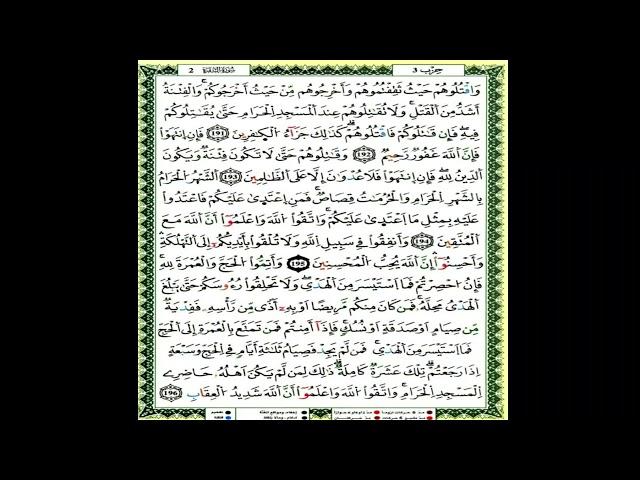 حزب 3
سورة البقرة 2
وَاقْتُلُوهُمْ حَيْثُ ثَقِفْتُمُوهُمْ وَأَخْرِجُوهُم مِّنْ حَيْثُ أَخْرَجُوكُمْ وَالْفِتْنَةُ
أَشَدُّ مِنَ الْقَتْلِ وَلَا تُقَاتِلُوهُمْ عِندَ الْمَسْجِدِ الْحَرَامِ حَتَّىٰ يُقَاتِلُوكُمْ
فِيهِ فَإِن قَاتَلُوكُمْ فَاقْتُلُوهُمْ كَذَٰلِكَ جَزَآءُ الْكَافِرِينَ 191 فَإِنِ انتَهَوْا
فَإِنَّ اللَّهَ غَفُورٌ رَّحِيمٌ 192 وَقَاتِلُوهُمْ حَتَّىٰ لَا تَكُونَ فِتْنَةٌ وَيَكُونَ
الدِّينُ لِلَّهِ فَإِنِ انتَهَوْا فَلَا عُدْوَانَ إِلَّا عَلَى الظَّالِمِينَ 193 الشَّهْرُ الْحَرَامُ
بِالشَّهْرِ الْحَرَامِ وَالْحُرُمَاتُ قِصَاصٌ فَمَنِ اعْتَدَىٰ عَلَيْكُمْ فَاعْتَدُوا
عَلَيْهِ بِمِثْلِ مَا اعْتَدَىٰ عَلَيْكُمْ وَاتَّقُوا اللَّهَ وَاعْلَمُوا أَنَّ اللَّهَ مَعَ
الْمُتَّقِينَ 194 وَأَنفِقُوا فِي سَبِيلِ اللَّهِ وَلَا تُلْقُوا بِأَيْدِيكُمْ إِلَى التَّهْلُكَةِ
وَأَحْسِنُوا إِنَّ اللَّهَ يُحِبُّ الْمُحْسِنِينَ 195 وَأَتِمُّوا الْحَجَّ وَالْعُمْرَةَ لِلَّهِ
فَإِنْ أُحْصِرْتُمْ فَمَا اسْتَيْسَرَ مِنَ الْهَدْيِ وَلَا تَحْلِقُوا رُءُوسَكُمْ حَتَّىٰ يَبْلُغَ
الْهَدْيُ مَحِلَّهُ فَمَن كَانَ مِنكُم مَّرِيضًا أَوْ بِهِ أَذًى مِّن رَّأْسِهِ فَفِدْيَةٌ
مِّن صِيَامٍ أَوْ صَدَقَةٍ أَوْ نُسُكٍ فَإِذَآ أَمِنتُمْ فَمَن تَمَتَّعَ بِالْعُمْرَةِ إِلَى الْحَجِّ
فَمَا اسْتَيْسَرَ مِنَ الْهَدْيِ فَمَن لَّمْ يَجِدْ فَصِيَامُ ثَلَاثَةِ أَيَّامٍ فِي الْحَجِّ وَسَبْعَةٍ
إِذَا رَجَعْتُمْ تِلْكَ عَشَرَةٌ كَامِلَةٌ ذَٰلِكَ لِمَن لَّمْ يَكُنْ أَهْلُهُ حَاضِرِي
الْمَسْجِدِ الْحَرَامِ وَاتَّقُوا اللَّهَ وَاعْلَمُوا أَنَّ اللَّهَ شَدِيدُ الْعِقَابِ 196